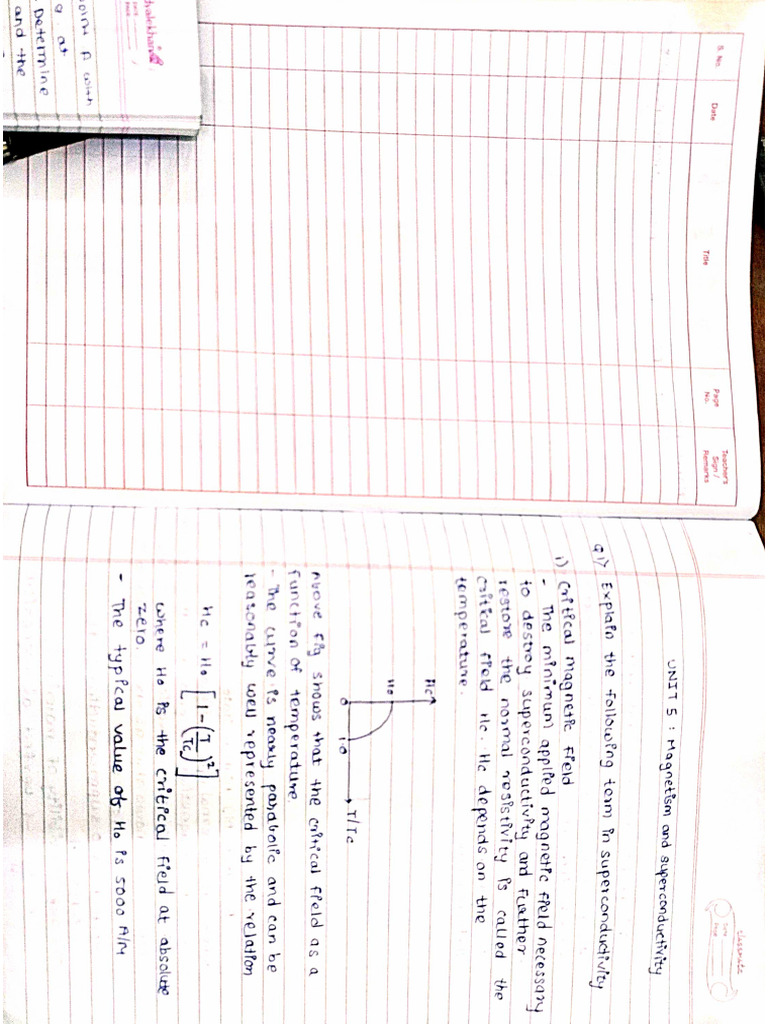 S. No.
Date
Title
Page
No.
Teacher's
Sign /
Remarks
point A with
at
Determine
and the
classmate
Date
Page
UNIT 5 : Magnetism and superconductivity
Q1) Explain the following term in superconductivity
1) Critical magnetic field
- The minimum applied magnetic field necessary
to destroy superconductivity and further
restore the normal resistivity is called the
critical field Hc. Hc depends on the
temperature.
Hc
Ho
0
1.0
T/Tc
Above fig shows that the critical field as a
function of temperature.
- The curve is nearly parabolic and can be
reasonably well represented by the relation
Hc = Ho [1-(T/Tc)²]
where Ho is the critical field at absolute
zero.
- The typical value of Ho is 5000 A/M